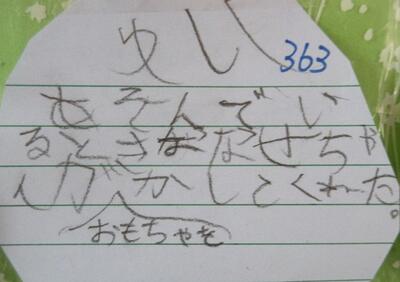 ゆい
363
あそんでい
るときななせちゃ
んがかしてくれた。
おもちゃを